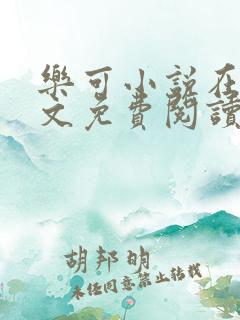 樂可小說在
文免費閱讀
胡邦明
未经同意禁止转载